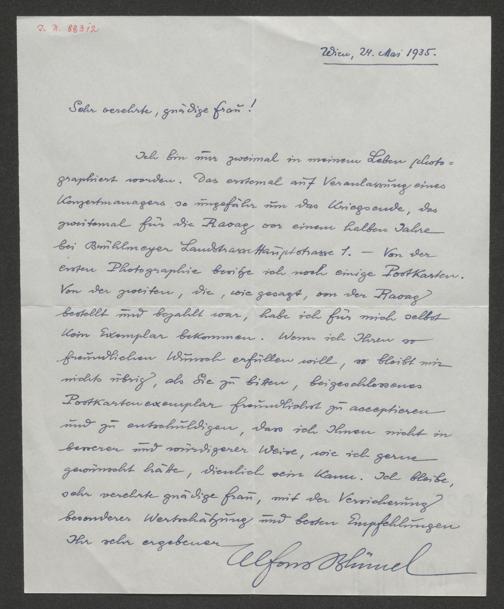 J. N. 883/2
Wien, 24. Mai 1935.
Sehr verehrte, gnädige Frau!
Ich bin nur zweimal in meinem Leben photo=
graphiert worden. Das erstemal auf Veranlassung eines
Konzertmanagers so ungefähr um das Kriegsende, das
zweitemal für die Ravag vor einem halben Jahre
bei Brühlmeyer Landstrasse Hauptstrasse 1. — Von der
ersten Photographie besitze ich noch einige Postkarten.
Von der zweiten, die, wie gesagt, von der Ravag
bestellt und bezahlt war, habe ich für mich selbst
kein Exemplar bekommen. Wenn ich Ihren so
freundlichen Wunsch erfüllen will, so bleibt mir
nichts übrig, als Sie zu bitten, beigeschlossenes
Postkartenexemplar freundlichst zu acceptieren
und zu entschuldigen, dass ich Ihnen nicht in
besserer und würdigerer Weise, wie ich gerne
gewünscht hätte, dienlich sein kann. Ich bleibe,
sehr verehrte gnädige Frau, mit der Versicherung
besonderer Wertschätzung und besten Empfehlungen
Ihr sehr ergebener
Alfons Blümel